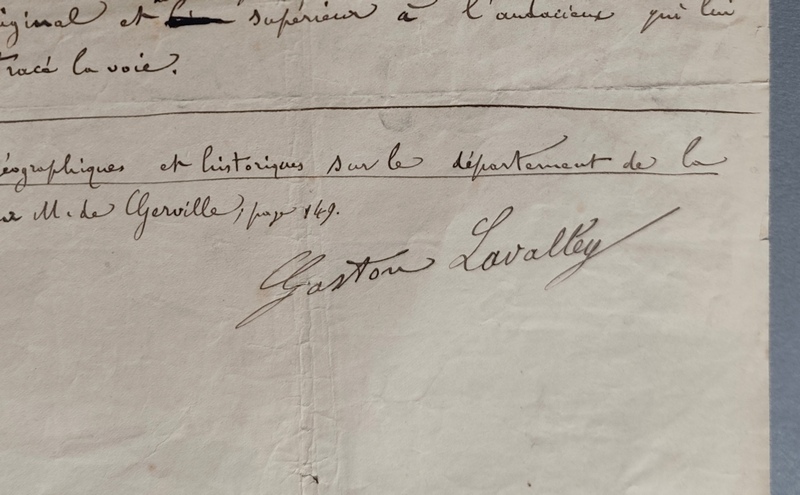 original et supérieur à l'audacieux qui lui
tracé la voie.
géographiques et historiques sur le département de la
M. de Gerville, page 149.
Gaston Lavalley